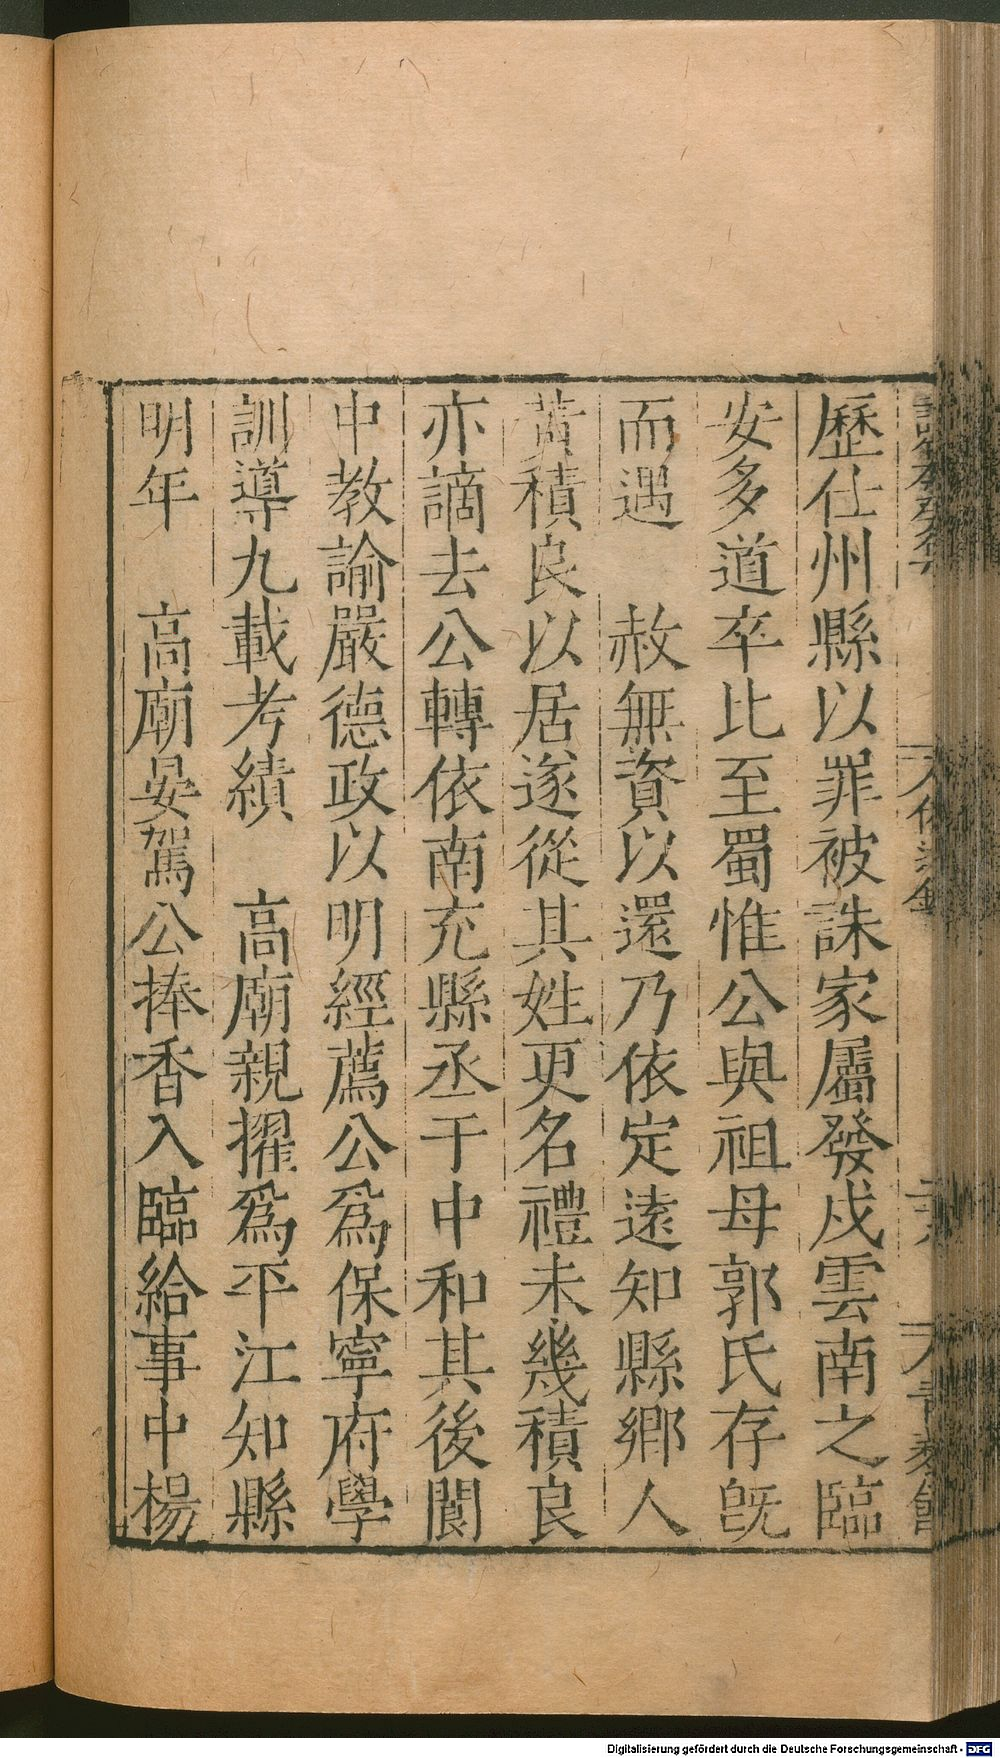 歷仕州縣以罪被誅家屬發戍雲南之臨
安多道卒比至蜀惟公與祖母郭氏存旣
而遇　赦無資以還乃依定遠知縣鄉人
黃積良以居遂從其姓更名禮未幾積良
亦謫去公轉依南充縣丞于中和其後閬
中教諭嚴德政以明經薦公爲保寧府學
訓導九載考績　高廟親擢爲平江知縣
明年　高廟晏駕公捧香入臨給事中楊
Digitalisierung gefördert durch die Deutsche Forschungsgemeinschaft - DFG